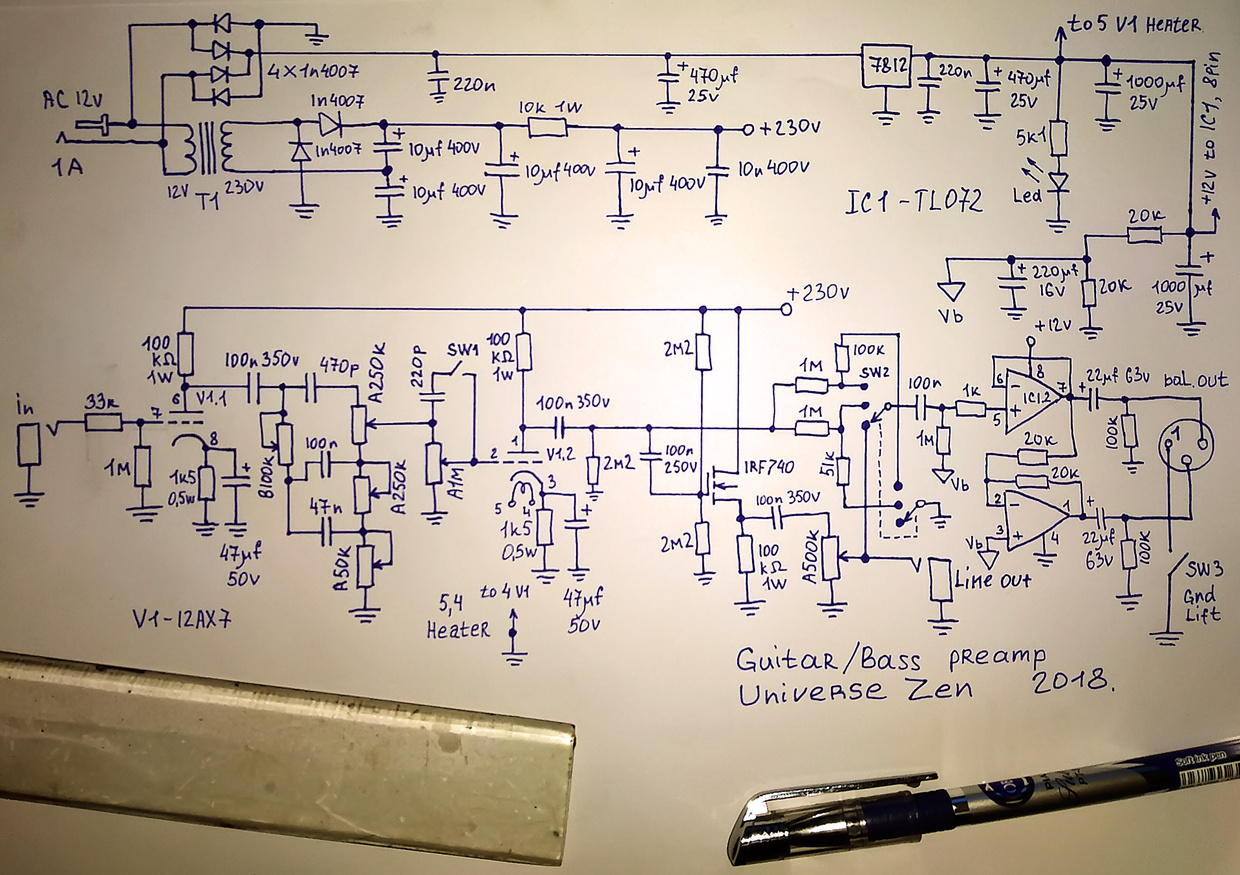 to 5 V1 Heater
4x1n4007
220n
+ 470µf
25v
7812
220n
+ 470µf
25v
+ 1000µf
25v
+12v to IC1, 8pin
AC 12v
1A
12v
T1
230v
1n4007
1n4007
+
10µf 400v
+
10µf 400v
10k 1W
+
10µf 400v
+
10µf 400v
+230v
10n 400v
5k1
Led
IC1 - TL072
20k
20k
+
1000µf
25v
+ 220µf
16v
Vb
+230v
+12v
in
33k
1M
100
kΩ
1W
6
7
V1.1
8
1k5
0,5w
+
47µf
50v
100n 350v
470p
B100k
100n
47n
A250k
A250k
A50k
220p
SW1
A1M
100
kΩ
1W
1
2
V1.2
3
5
4
1k5
0,5w
+
47µf
50v
100n 350v
2M2
100n
250v
2M2
2M2
IRF740
100n 350v
100
kΩ
1W
A500k
1M
1M
100k
SW2
51k
100n
1M
Vb
1k
6
-
8
IC1.2
7
+
5
+
22µf 63v
100k
bal.out
1
20k
20k
2
-
3
+
Vb
1
4
+
22µf
63v
100k
SW3
Gnd
Lift
Line out
V1-12AX7
5,4
Heater
to 4 V1
Guitar/Bass preamp
Universe Zen 2018.
Soft ink pen